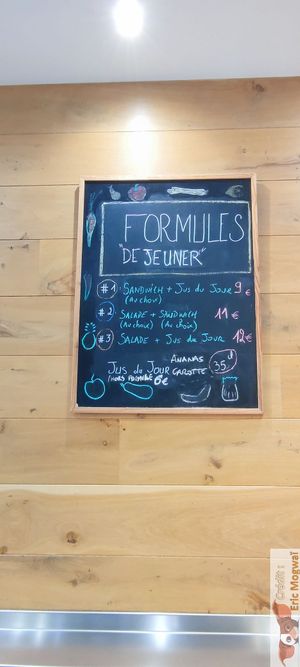 FORMULES
"DEJEUNER"
#1 SANDWICH + JUS DU JOUR 9€
(Au choix)
#2 SALADE + SANDWICH 11€
(Au choix) (Au choix)
#3 SALADE + JUS DU JOUR 12€
ANANAS
JUS du JOUR CAROTTE 35cl
(HORS FORMULE) 6€
Crédit :
Eric Mogwaï